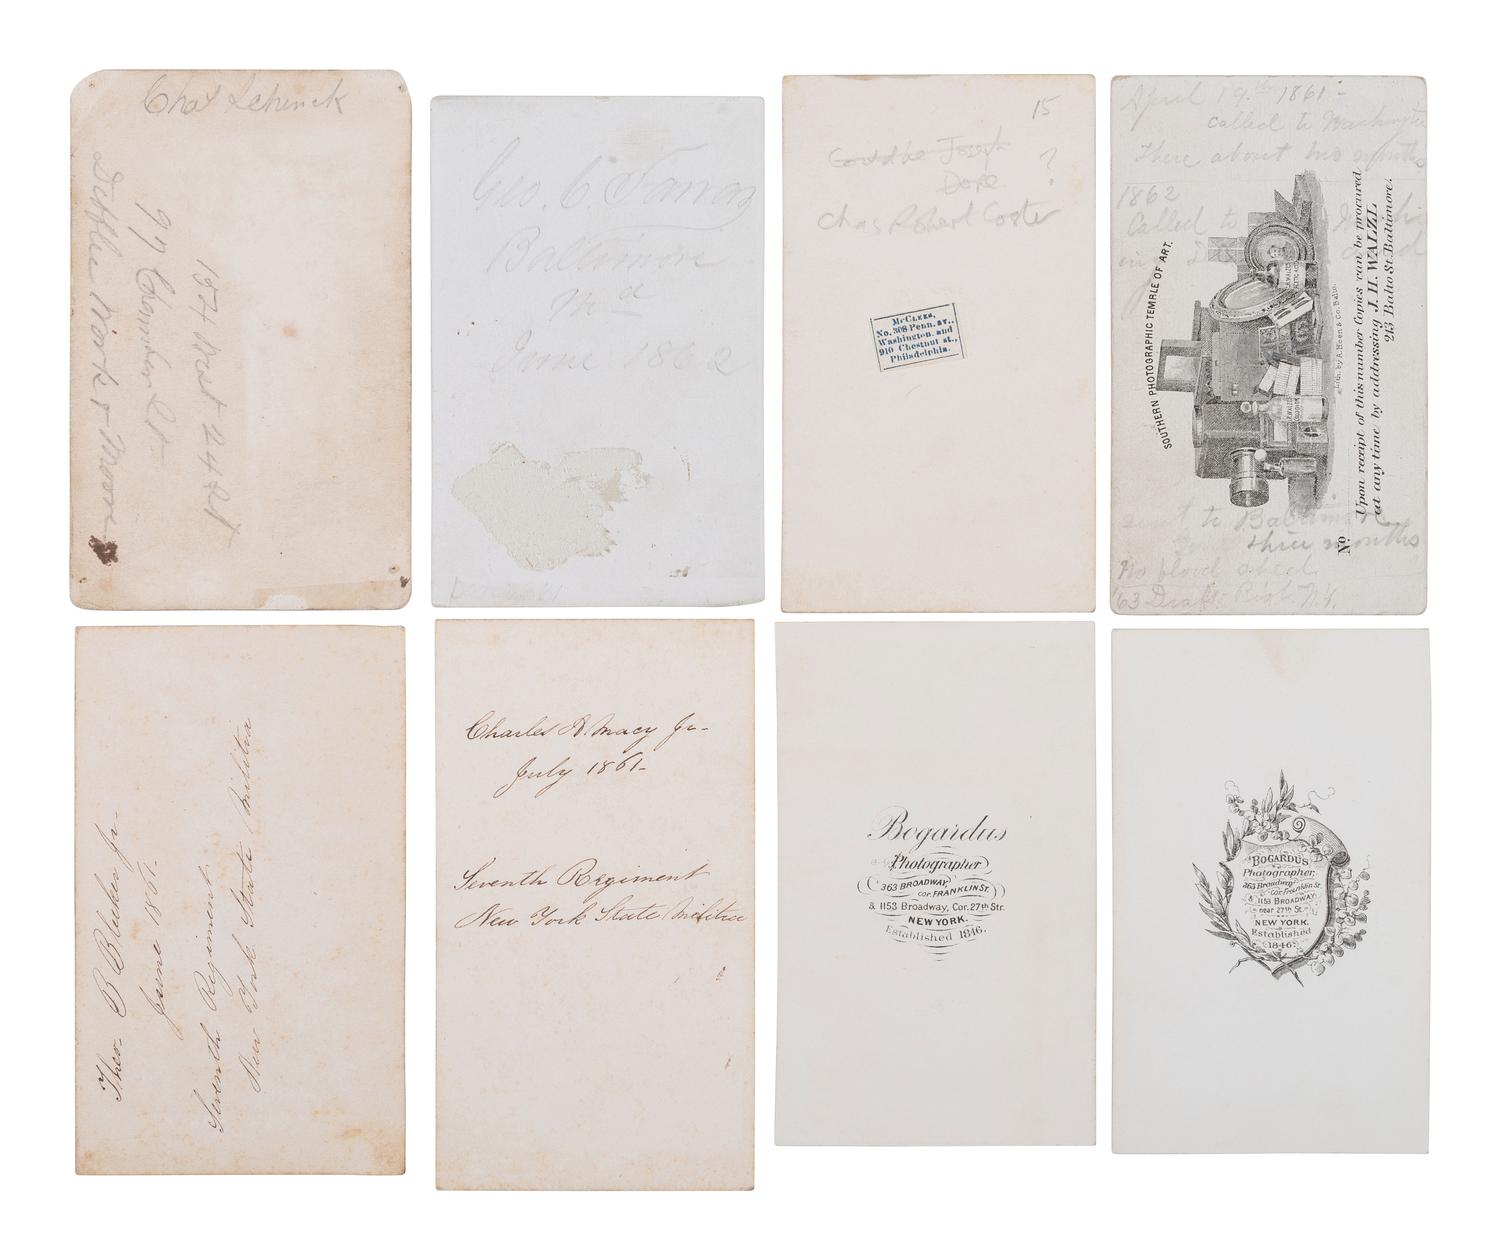 Chas Schenck
97 Chamber St
157 West 24 St
Geo. C.
Baltimore
Md
June 1862
15
Could be Joseph
Dore ?
Chas Robert Coster
McClees,
No. 308 Penn. av.,
Washington, and
910 Chestnut st.,
Philadelphia.
April 19th 1861 -
called to Washington
There about two months
1862
Called to
SOUTHERN PHOTOGRAPHIC TEMPLE OF ART.
Lith. by A. Hoen & Co. Balto.
No
Upon receipt of this number Copies can be procured
at any time by addressing J. H. WALZL.
213 Balto St. Baltimore.
sent to Baltimore
three months
No blood shed
'63 Draft Riot N.Y.
Theo- B Bleeker Jr-
June 1861.
Seventh Regiment
New York State Militia
Charles A. Macy Jr-
July 1861-
Seventh Regiment
New York State Militia
Bogardus
Photographer
363 BROADWAY,
COR. FRANKLIN ST.
& 1153 Broadway, Cor. 27th Str.
NEW YORK.
Established 1846.
BOGARDUS
Photographer,
363 Broadway
cor. Franklin St.
& 1153 BROADWAY
near 27th St.
NEW YORK.
Established
1846.